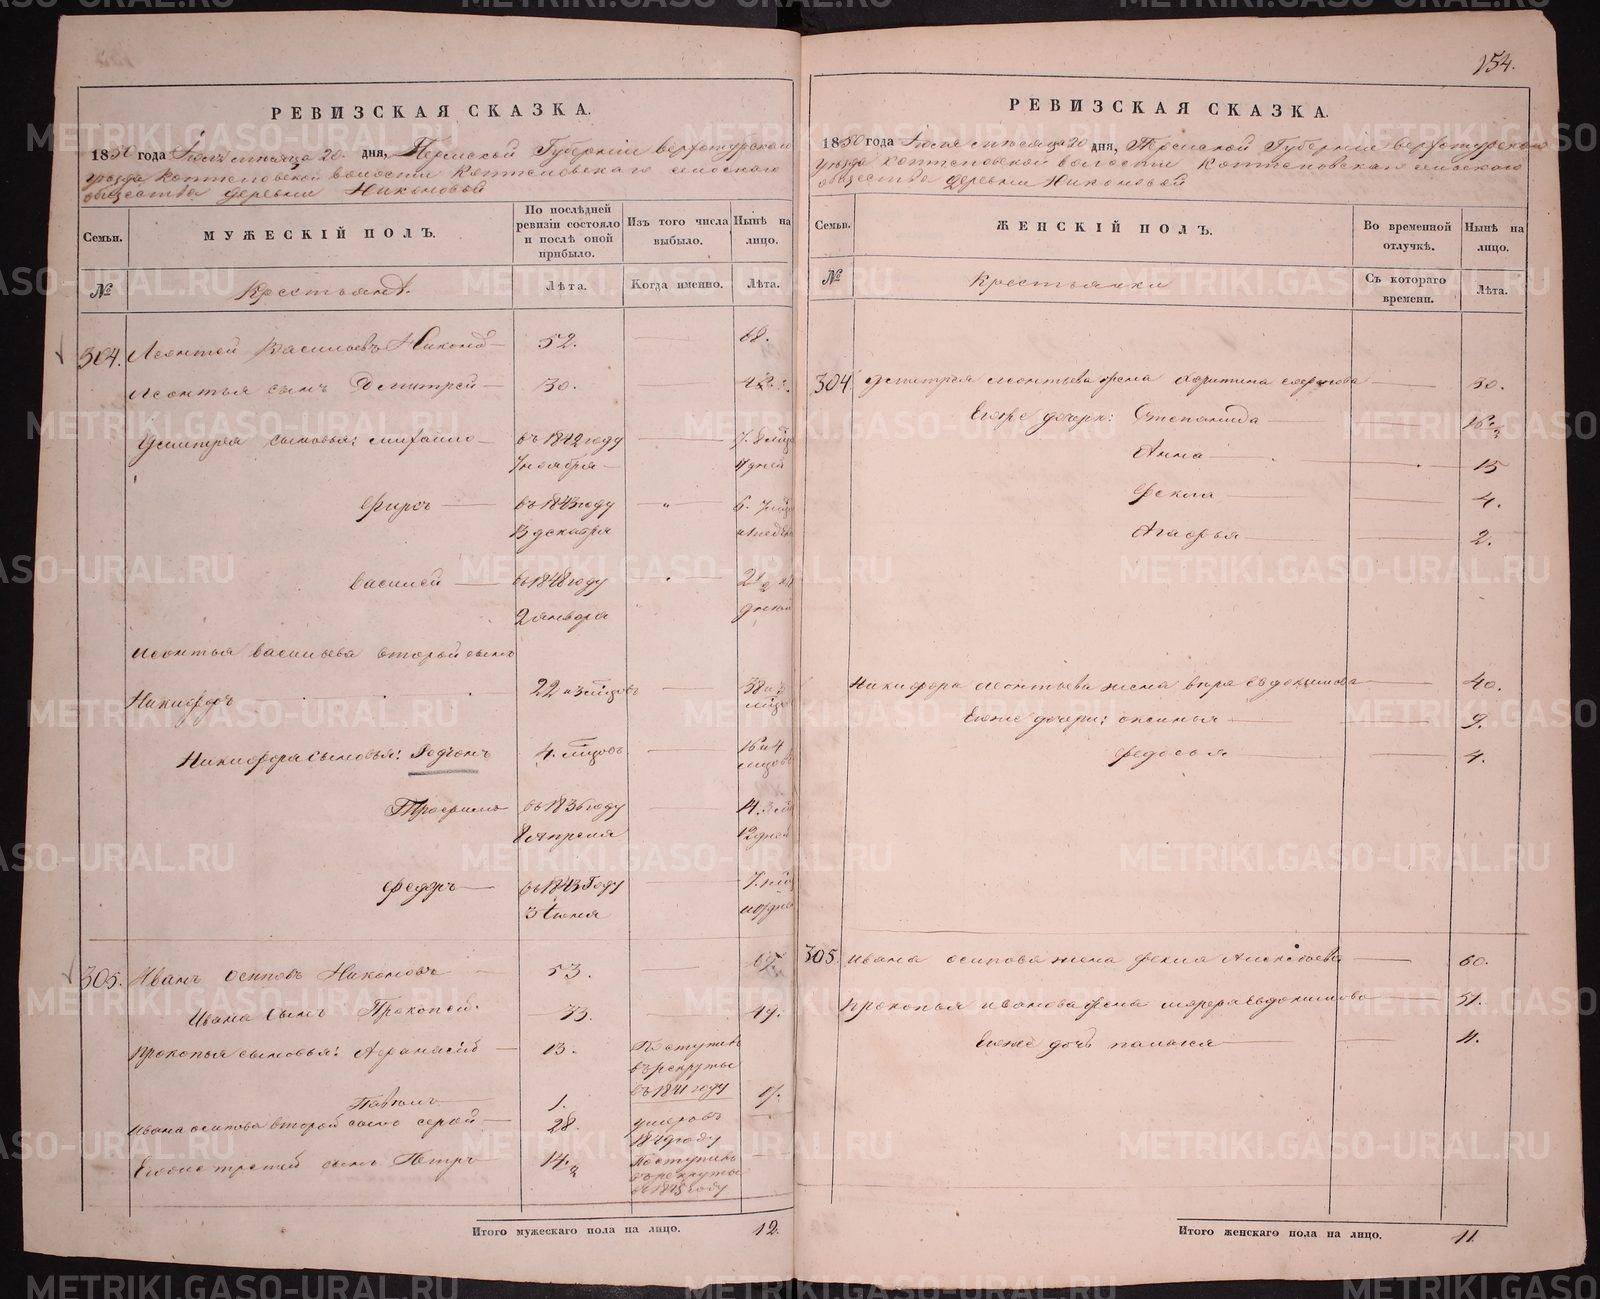 154.
РЕВИЗСКАЯ СКАЗКА.
1850 года Іюля мѣсяца 20 дня, Пермской Губерніи Верхотурскаго
уѣзда Коптеловской волости Коптеловскаго сельскаго
общества деревни Никоновой
Семьи.
МУЖЕСКІЙ ПОЛЪ.
По послѣдней ревизіи состояло и послѣ оной прибыло.
Изъ того числа выбыло.
Нынѣ на лицо.
№
Крестьянѣ.
Лѣта.
Когда именно.
Лѣта.
304. Леонтей Васильевъ Никоновъ 52. 68.
Леонтья сынъ Дмитрей 30.
Дмитрея сыновья: Михайло въ 1842 году 7.
7 ноября
въ 1843 году 6.
13 декабря
Василей въ 1848 году
2 января
Леонтья Васильева второй сынъ
Никифоръ 22
Никифора сыновья: Родіонъ 4. 16 и 4
Трофимъ въ 1836 году 14.
8 апреля 12 дней
Федоръ въ 1843 году 7.
3 Іюня
305. Иванъ Осиповъ Никоновъ 53.
Ивана сынъ Прокопей 49.
Прокопья сыновья: Афанасій 13. Поступилъ
въ рекруты
въ 1841 году
Павелъ 1. 17.
Ивана Осипова второй сынъ Сергей 28. умеръ въ
1849 году
третей сынъ Петръ 14. Поступилъ
въ рекруты
Итого мужескаго пола на лицо. 12.
РЕВИЗСКАЯ СКАЗКА.
1850 года Іюля мѣсяца 20 дня, Пермской Губерніи Верхотурскаго
уѣзда Коптеловской волости Коптеловскаго сельскаго
общества деревни Никоновой
Семьи.
ЖЕНСКІЙ ПОЛЪ.
Во временной отлучкѣ.
Нынѣ на лицо.
№
Крестьянки
Съ котораго времени.
Лѣта.
304. Дмитрея Леонтьева жена Харитина 30.
Егоже дочери: Степанида
Анна 15
Фекла 4.
Агафья 2.
Никифора Леонтьева жена Вѣра Евдокимова 40.
Егоже дочери: Оксинья 9.
Федосья 4.
305. Ивана Осипова жена Фекла Алексѣева 60.
Прокопья Иванова жена Евдокимова 51.
Егоже дочь 11.
Итого женскаго пола на лицо. 11
METRIKI.GASO-URAL.RU